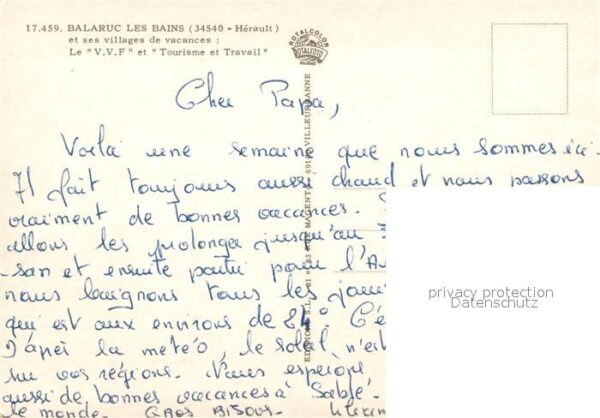 17.459. BALARUC LES BAINS (34540 - Hérault)
et ses villages de vacances :
Le "V.V.F" et "Tourisme et Travail"
ROTALCOLOR
ROTALFOTO
MILANO
Cher Papa,
Voilà une semaine que nous sommes ici.
Il fait toujours aussi chaud et nous passons
vraiment de bonnes vacances.
allons les prolonger jusqu'au
san et ensuite partir pour l'A
nous baignons tous les jour
qui est aux environs de 24°. C'é
D'après la météo, le soleil n'est
sur vos régions. Nous espérons
aussi de bonnes vacances à Sablé.
le monde. GROS BISOUS.
EDITIONS S.L. 83 RUE MAGENTA, VILLEURBANNE
privacy protection
Datenschutz